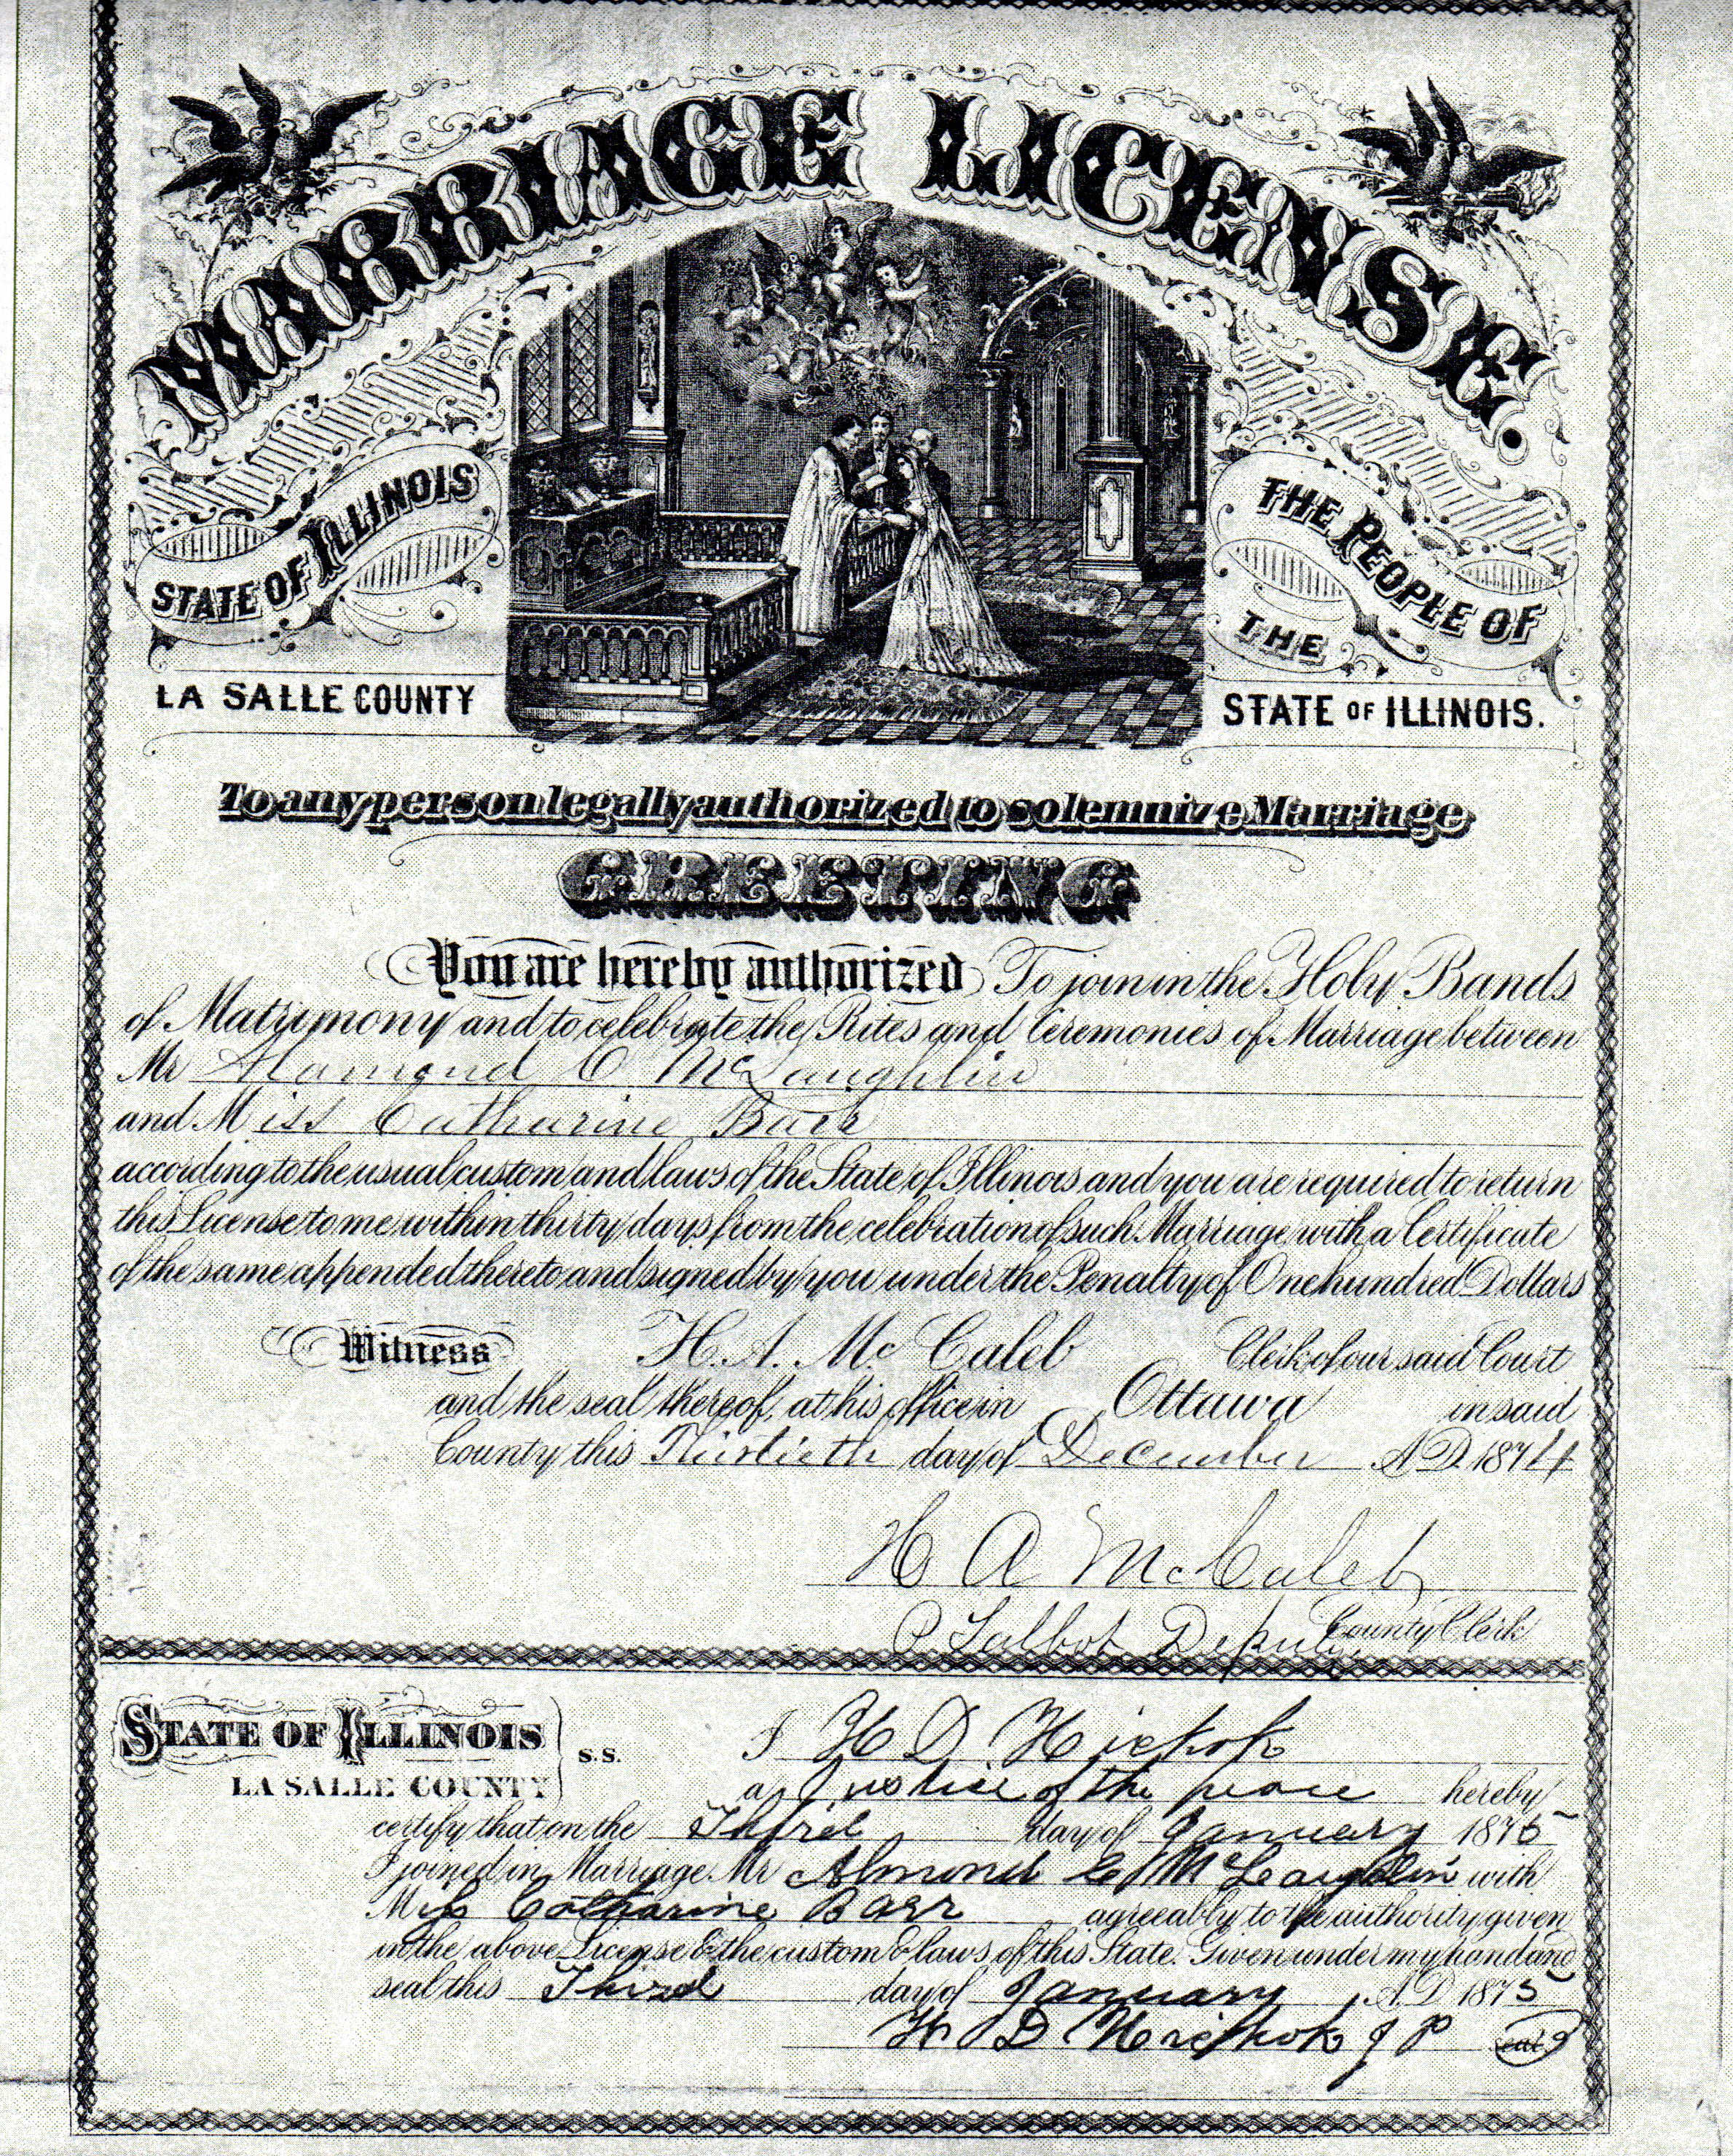 MARRIAGE LICENSE.
STATE OF ILLINOIS
THE PEOPLE OF
THE
LA SALLE COUNTY
STATE OF ILLINOIS.
To any person legally authorized to solemnize Marriage
GREETING
You are hereby authorized To join in the Holy Bands
of Matrimony and to celebrate the Rites and Ceremonies of Marriage between
Mr Alamond C McLaughlin
and Miss Catharine Barr
according to the usual custom and laws of the State of Illinois and you are required to return
this License to me within thirty days from the celebration of such Marriage with a Certificate
of the same appended thereto and signed by you under the Penalty of One hundred Dollars
Witness H. A. Mc Caleb Clerk of our said Court
and the seal thereof, at his office in Ottawa in said
County this Thirtieth day of December A.D. 1874
H A McCaleb
P Talbot Deputy County Clerk
STATE OF ILLINOIS
LA SALLE COUNTY
s.s.
I H D Hickok
a Justice of the peace hereby
certify that on the Third day of January 1875
I joined in Marriage Mr Almond C McLaughlin with
Miss Catharine Barr agreeably to the authority given
in the above License & the custom & laws of this State. Given under my hand and
seal this Third day of January A.D 1875
H D Hickok J P seal